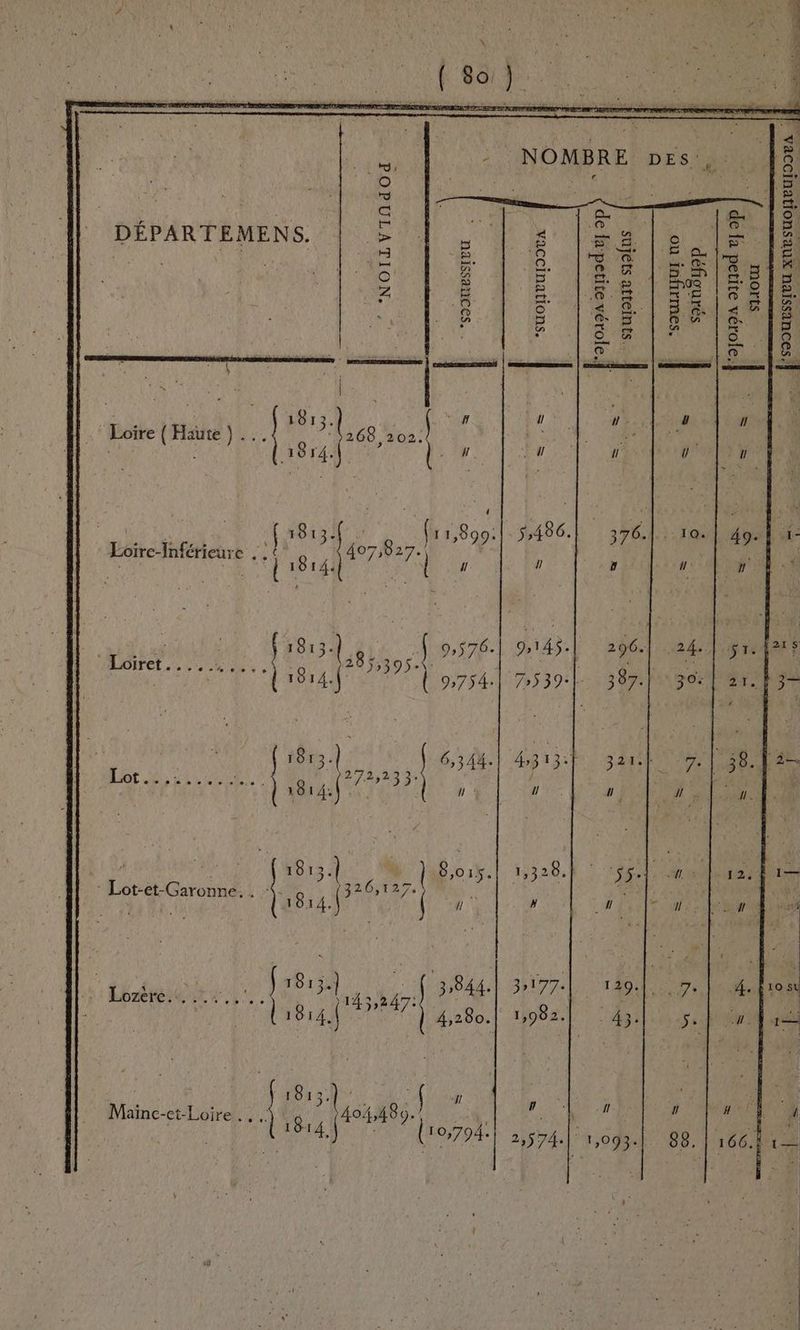 ( 80 )
DÉPARTEMENS.
POPULATION.
NOMBRE DES
naissances.
vaccinations.
sujets atteints
de la petite vérole.
défigurés
ou infirmes.
morts
de la petite vérole.
vaccinations aux naissances.
Loire ( Haute ) ... { 1813. } 268,202. { " " " " "
{ 1814. } { " " " " "
Loire-Inférieure .. { 1813. } 407,827. { 11,899. 5,486. 376. 10. 49. 1-
{ 1814. } { " " " " "
Loiret......... { 1813. } 285,395. { 9,576. 9,145. 296. 24. 51. 21 s
{ 1814. } { 9,754. 7,539. 387. 30. 21. 3—
Lot........... { 1813. } 272,233. { 6,344. 4,313. 321. 7. 38. 2—
{ 1814. } { " " " " "
Lot-et-Garonne. . { 1813. } 326,127. { 8,015. 1,328. 55. " 12. 1—
{ 1814. } { " " " " "
Lozère......... { 1813. } 143,247. { 3,844. 3,177. 129. 7. 4. 10 su
{ 1814. } { 4,280. 1,982. 43. 5. " 1—
Maine-et-Loire.... { 1813. } 404,489. { " " " " "
{ 1814. } { 10,794. 2,574. 1,093. 88. 166. 1—